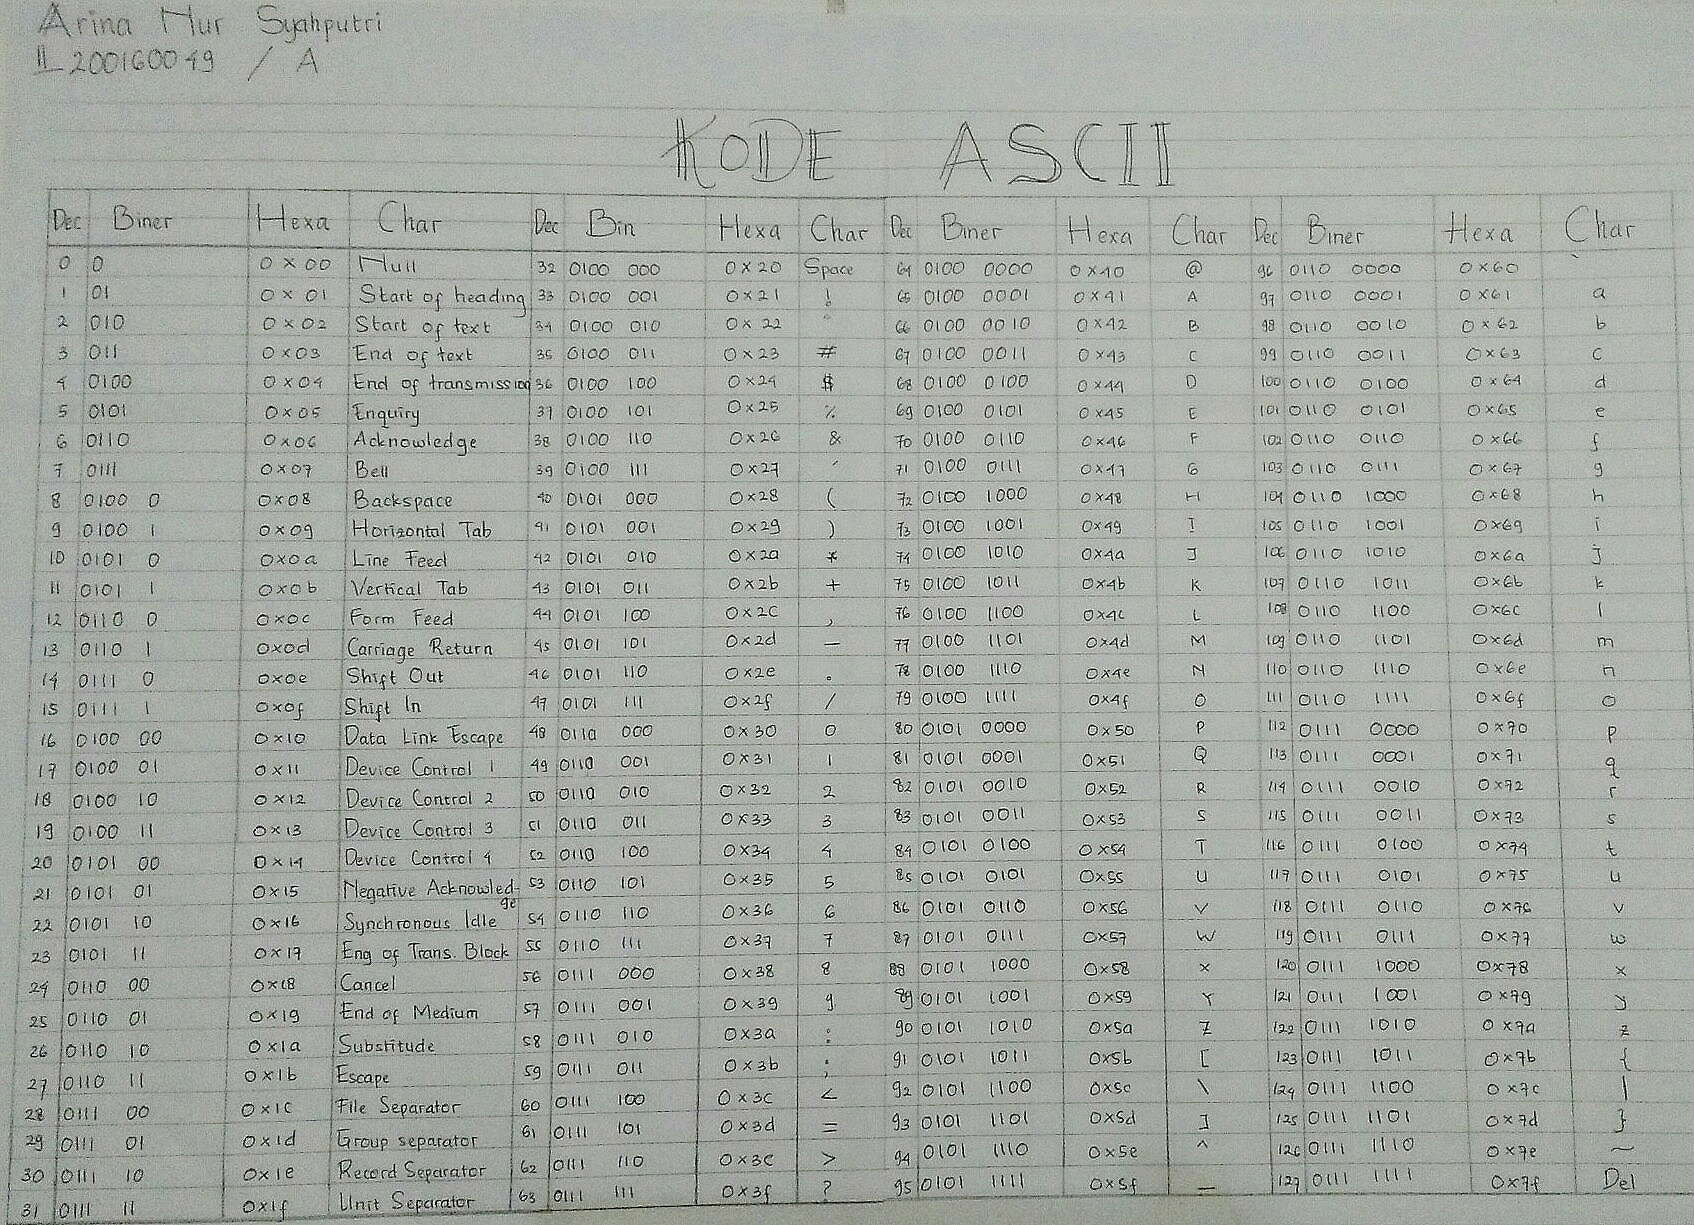 Arina Nur Syahputri
L200160049 / A
KODE ASCII
Dec Biner Hexa Char Dec Bin Hexa Char Dec Biner Hexa Char Dec Biner Hexa Char
0 0 0x00 Null 32 0100 000 0x20 Space 64 0100 0000 0x40 @ 96 0110 0000 0x60 `
1 01 0x01 Start of heading 33 0100 001 0x21 ! 65 0100 0001 0x41 A 97 0110 0001 0x61 a
2 010 0x02 Start of text 34 0100 010 0x22 " 66 0100 0010 0x42 B 98 0110 0010 0x62 b
3 011 0x03 End of text 35 0100 011 0x23 # 67 0100 0011 0x43 C 99 0110 0011 0x63 c
4 0100 0x04 End of transmission 36 0100 100 0x24 $ 68 0100 0100 0x44 D 100 0110 0100 0x64 d
5 0101 0x05 Enquiry 37 0100 101 0x25 % 69 0100 0101 0x45 E 101 0110 0101 0x65 e
6 0110 0x06 Acknowledge 38 0100 110 0x26 & 70 0100 0110 0x46 F 102 0110 0110 0x66 f
7 0111 0x07 Bell 39 0100 111 0x27 ' 71 0100 0111 0x47 G 103 0110 0111 0x67 g
8 0100 0 0x08 Backspace 40 0101 000 0x28 ( 72 0100 1000 0x48 H 104 0110 1000 0x68 h
9 0100 1 0x09 Horizontal Tab 41 0101 001 0x29 ) 73 0100 1001 0x49 I 105 0110 1001 0x69 i
10 0101 0 0x0a Line Feed 42 0101 010 0x2a * 74 0100 1010 0x4a J 106 0110 1010 0x6a j
11 0101 1 0x0b Vertical Tab 43 0101 011 0x2b + 75 0100 1011 0x4b K 107 0110 1011 0x6b k
12 0110 0 0x0c Form Feed 44 0101 100 0x2c , 76 0100 1100 0x4c L 108 0110 1100 0x6c l
13 0110 1 0x0d Carriage Return 45 0101 101 0x2d - 77 0100 1101 0x4d M 109 0110 1101 0x6d m
14 0111 0 0x0e Shift Out 46 0101 110 0x2e . 78 0100 1110 0x4e N 110 0110 1110 0x6e n
15 0111 1 0x0f Shift In 47 0101 111 0x2f / 79 0100 1111 0x4f O 111 0110 1111 0x6f o
16 0100 00 0x10 Data Link Escape 48 0110 000 0x30 0 80 0101 0000 0x50 P 112 0111 0000 0x70 p
17 0100 01 0x11 Device Control 1 49 0110 001 0x31 1 81 0101 0001 0x51 Q 113 0111 0001 0x71 q
18 0100 10 0x12 Device Control 2 50 0110 010 0x32 2 82 0101 0010 0x52 R 114 0111 0010 0x72 r
19 0100 11 0x13 Device Control 3 51 0110 011 0x33 3 83 0101 0011 0x53 S 115 0111 0011 0x73 s
20 0101 00 0x14 Device Control 4 52 0110 100 0x34 4 84 0101 0100 0x54 T 116 0111 0100 0x74 t
21 0101 01 0x15 Negative Acknowled-ge 53 0110 101 0x35 5 85 0101 0101 0x55 U 117 0111 0101 0x75 u
22 0101 10 0x16 Synchronous Idle 54 0110 110 0x36 6 86 0101 0110 0x56 V 118 0111 0110 0x76 v
23 0101 11 0x17 Eng of Trans. Block 55 0110 111 0x37 7 87 0101 0111 0x57 W 119 0111 0111 0x77 w
24 0110 00 0x18 Cancel 56 0111 000 0x38 8 88 0101 1000 0x58 X 120 0111 1000 0x78 x
25 0110 01 0x19 End of Medium 57 0111 001 0x39 9 89 0101 1001 0x59 Y 121 0111 1001 0x79 y
26 0110 10 0x1a Substitude 58 0111 010 0x3a : 90 0101 1010 0x5a Z 122 0111 1010 0x7a z
27 0110 11 0x1b Escape 59 0111 011 0x3b ; 91 0101 1011 0x5b [ 123 0111 1011 0x7b {
28 0111 00 0x1c File Separator 60 0111 100 0x3c < 92 0101 1100 0x5c \ 124 0111 1100 0x7c |
29 0111 01 0x1d Group separator 61 0111 101 0x3d = 93 0101 1101 0x5d ] 125 0111 1101 0x7d }
30 0111 10 0x1e Record Separator 62 0111 110 0x3e > 94 0101 1110 0x5e ^ 126 0111 1110 0x7e ~
31 0111 11 0x1f Unit Separator 63 0111 111 0x3f ? 95 0101 1111 0x5f _ 127 0111 1111 0x7f Del